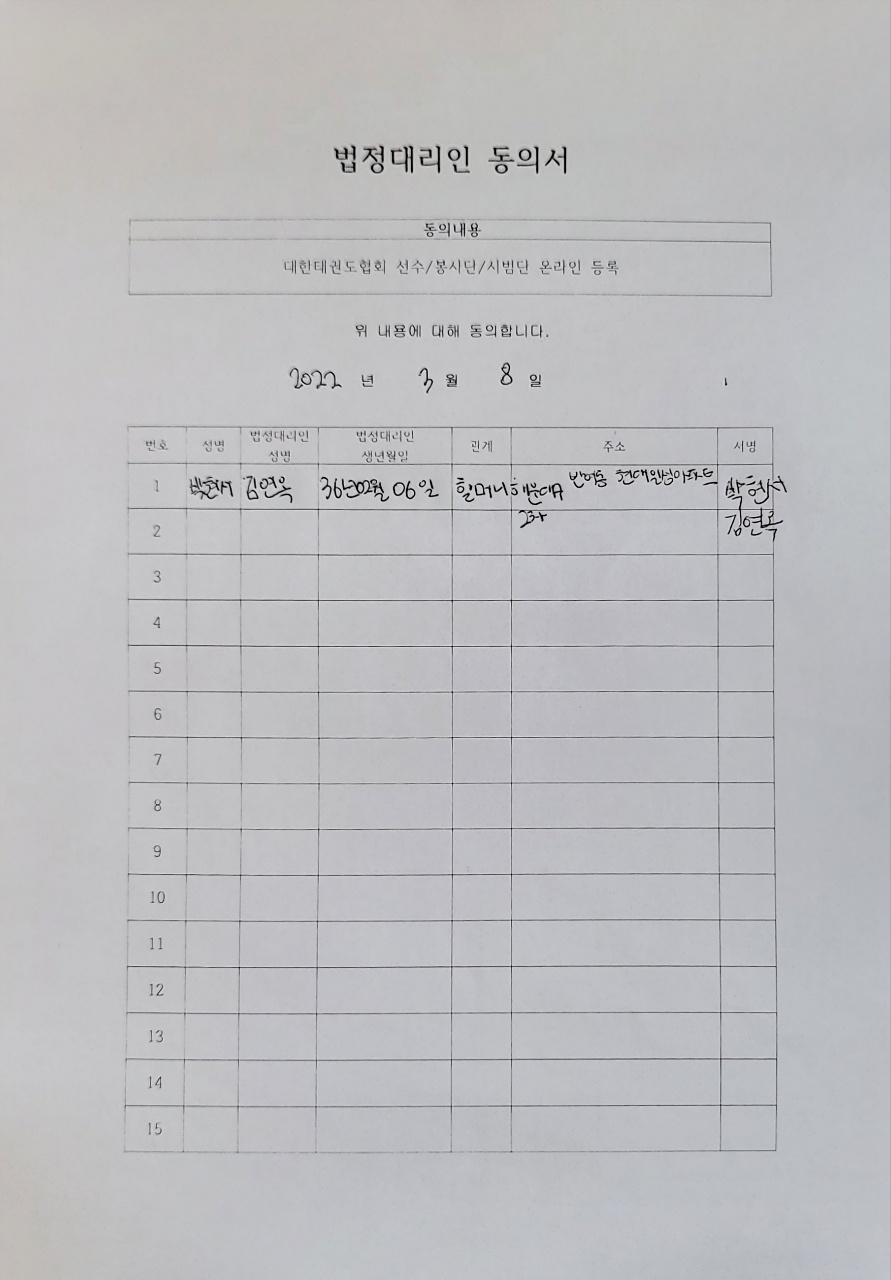 법정대리인 동의서
동의내용
대한태권도협회 선수/봉시단/시범단 온라인 등록
위 내용에 대해 동의합니다.
2022 년 3 월 8 일
번호 성명 법정대리인 성명 법정대리인 생년월일 관계 주소 서명
1 박현서 김연옥 36년02월 06일 할머니 해운대구 반여동 현대 아파트 박현서
2 김연옥
3
4
5
6
7
8
9
10
11
12
13
14
15